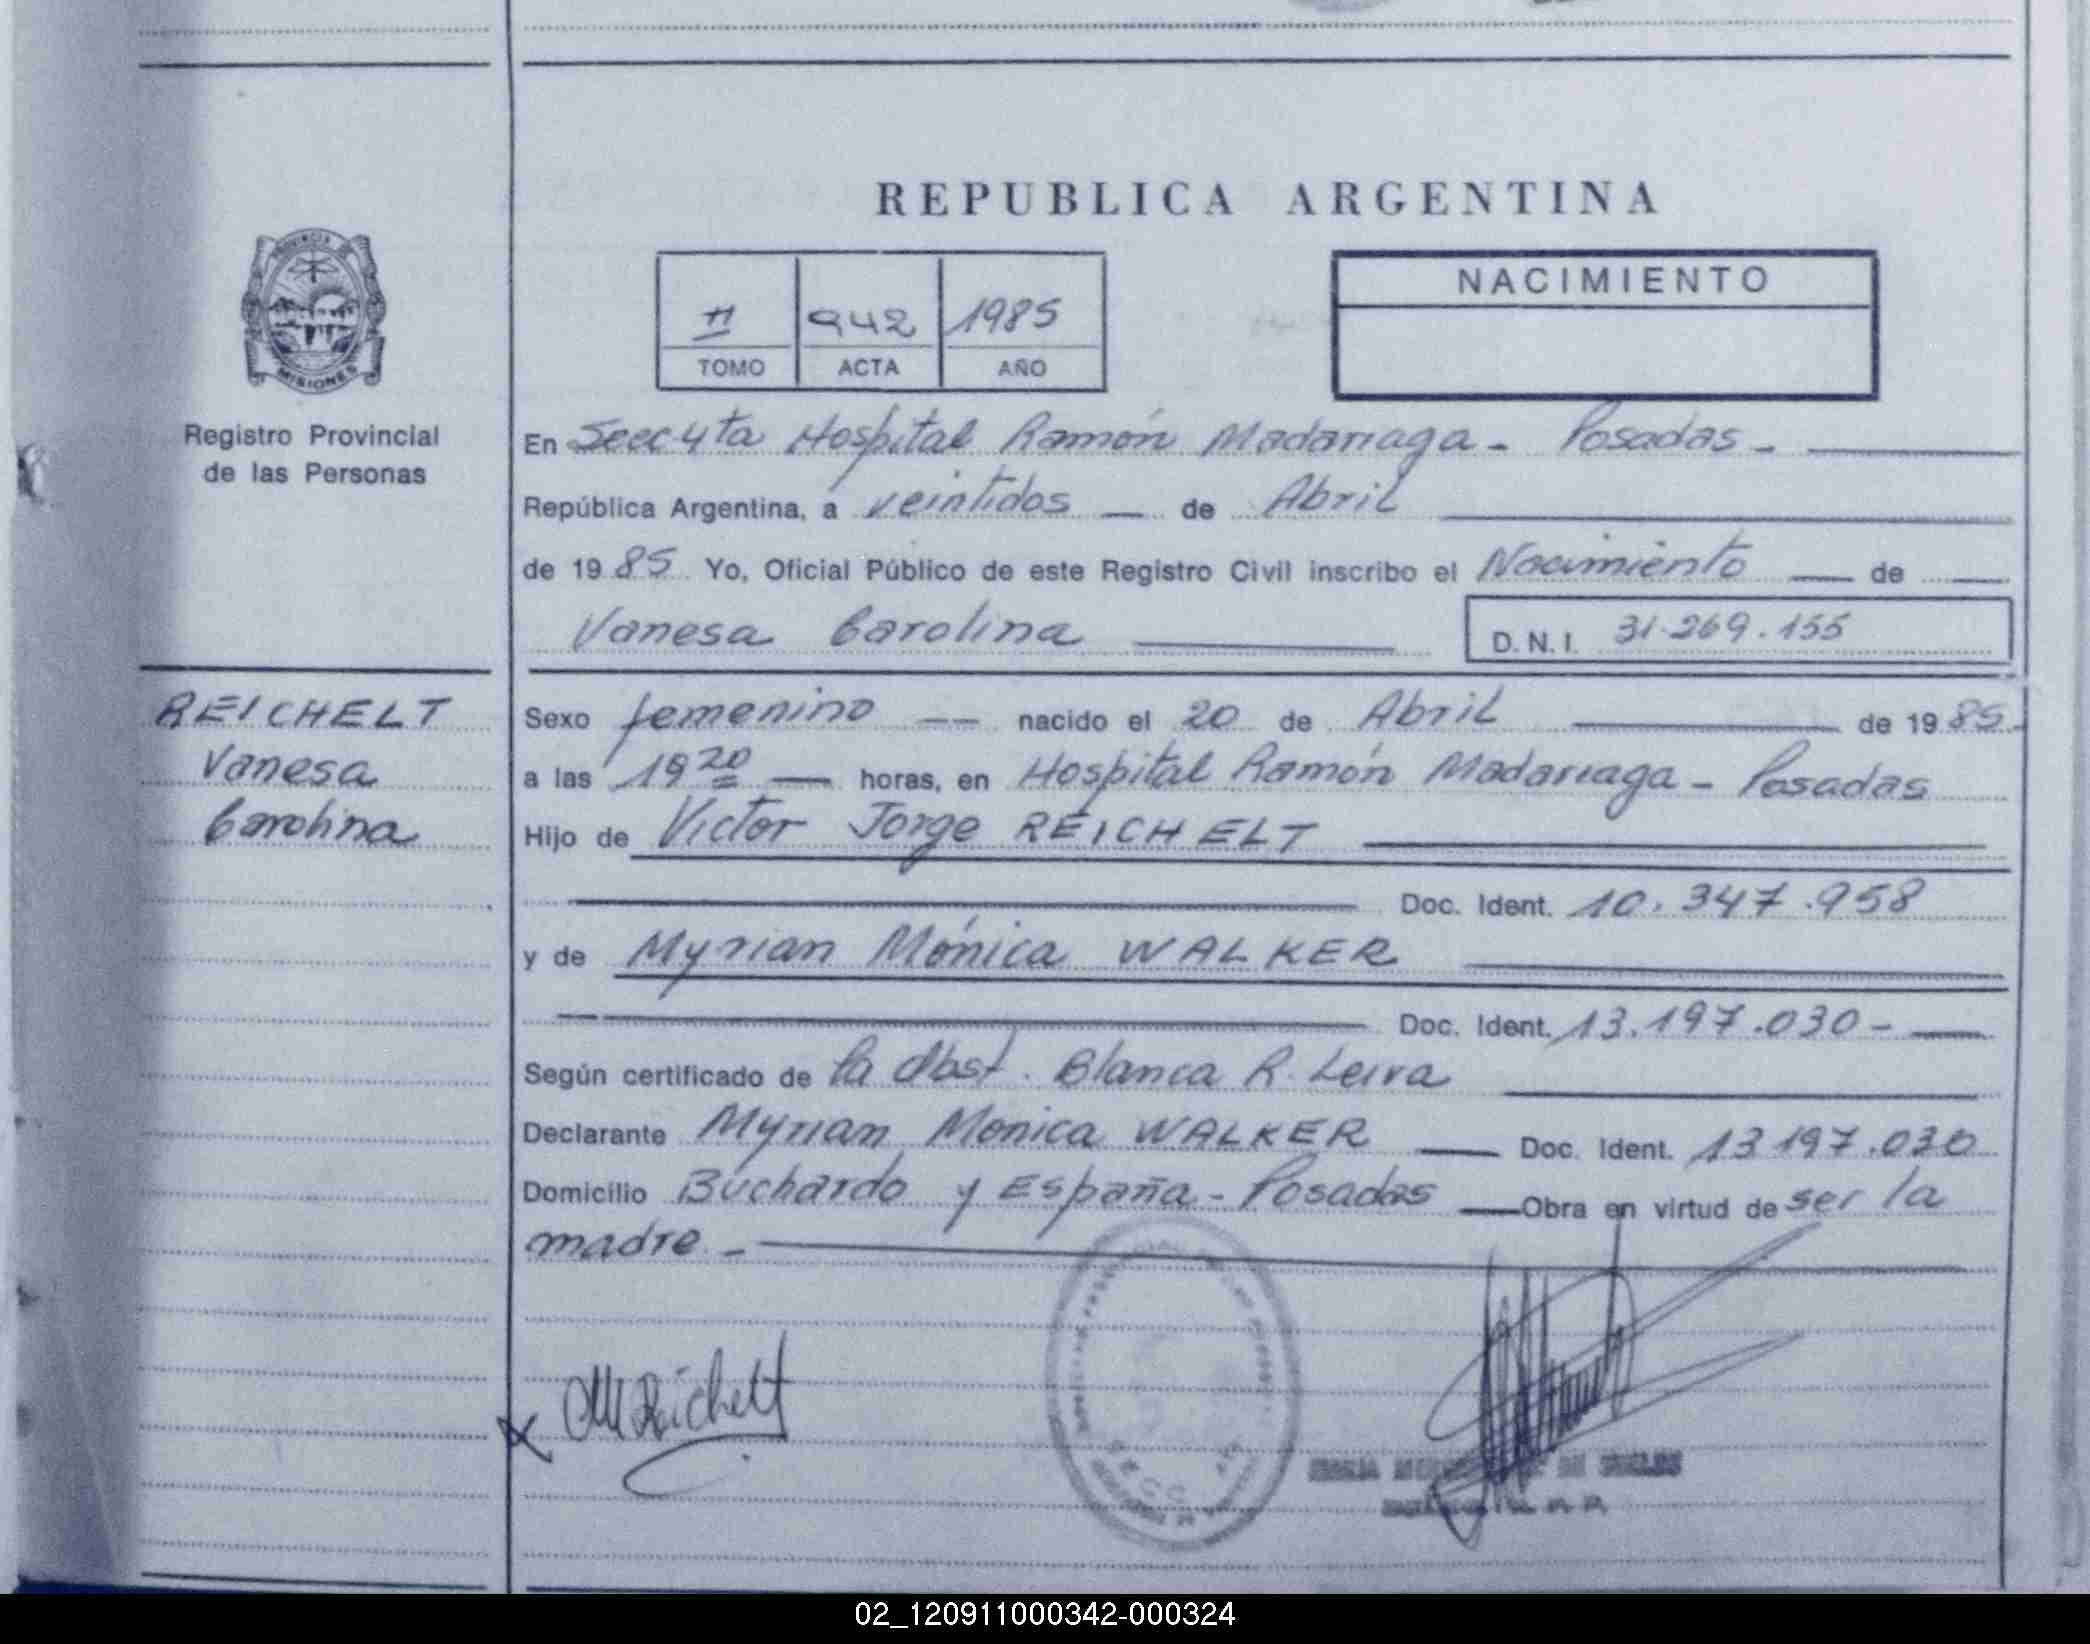 REPUBLICA ARGENTINA
PROVINCIA
MISIONES
Registro Provincial
de las Personas
II 942 1985
TOMO ACTA AÑO
NACIMIENTO
En Secc 4ta Hospital Ramón Madariaga - Posadas -
República Argentina, a veintidos de Abril
de 1985 Yo, Oficial Público de este Registro Civil inscribo el Nacimiento de
Vanesa Carolina D.N.I. 31.269.155
REICHELT
Vanesa
Carolina
Sexo femenino nacido el 20 de Abril de 1985
a las 19 20 horas, en Hospital Ramón Madariaga - Posadas
Hijo de Victor Jorge REICHELT
Doc. Ident. 10.347.958
y de Myrian Mónica WALKER
Doc. Ident. 13.197.030 -
Según certificado de la Obst. Blanca R. Leiva
Declarante Myrian Monica WALKER Doc. Ident. 13 197.030
Domicilio Buchardo y España - Posadas Obra en virtud de ser la
madre -
M Reichelt
02_120911000342-000324